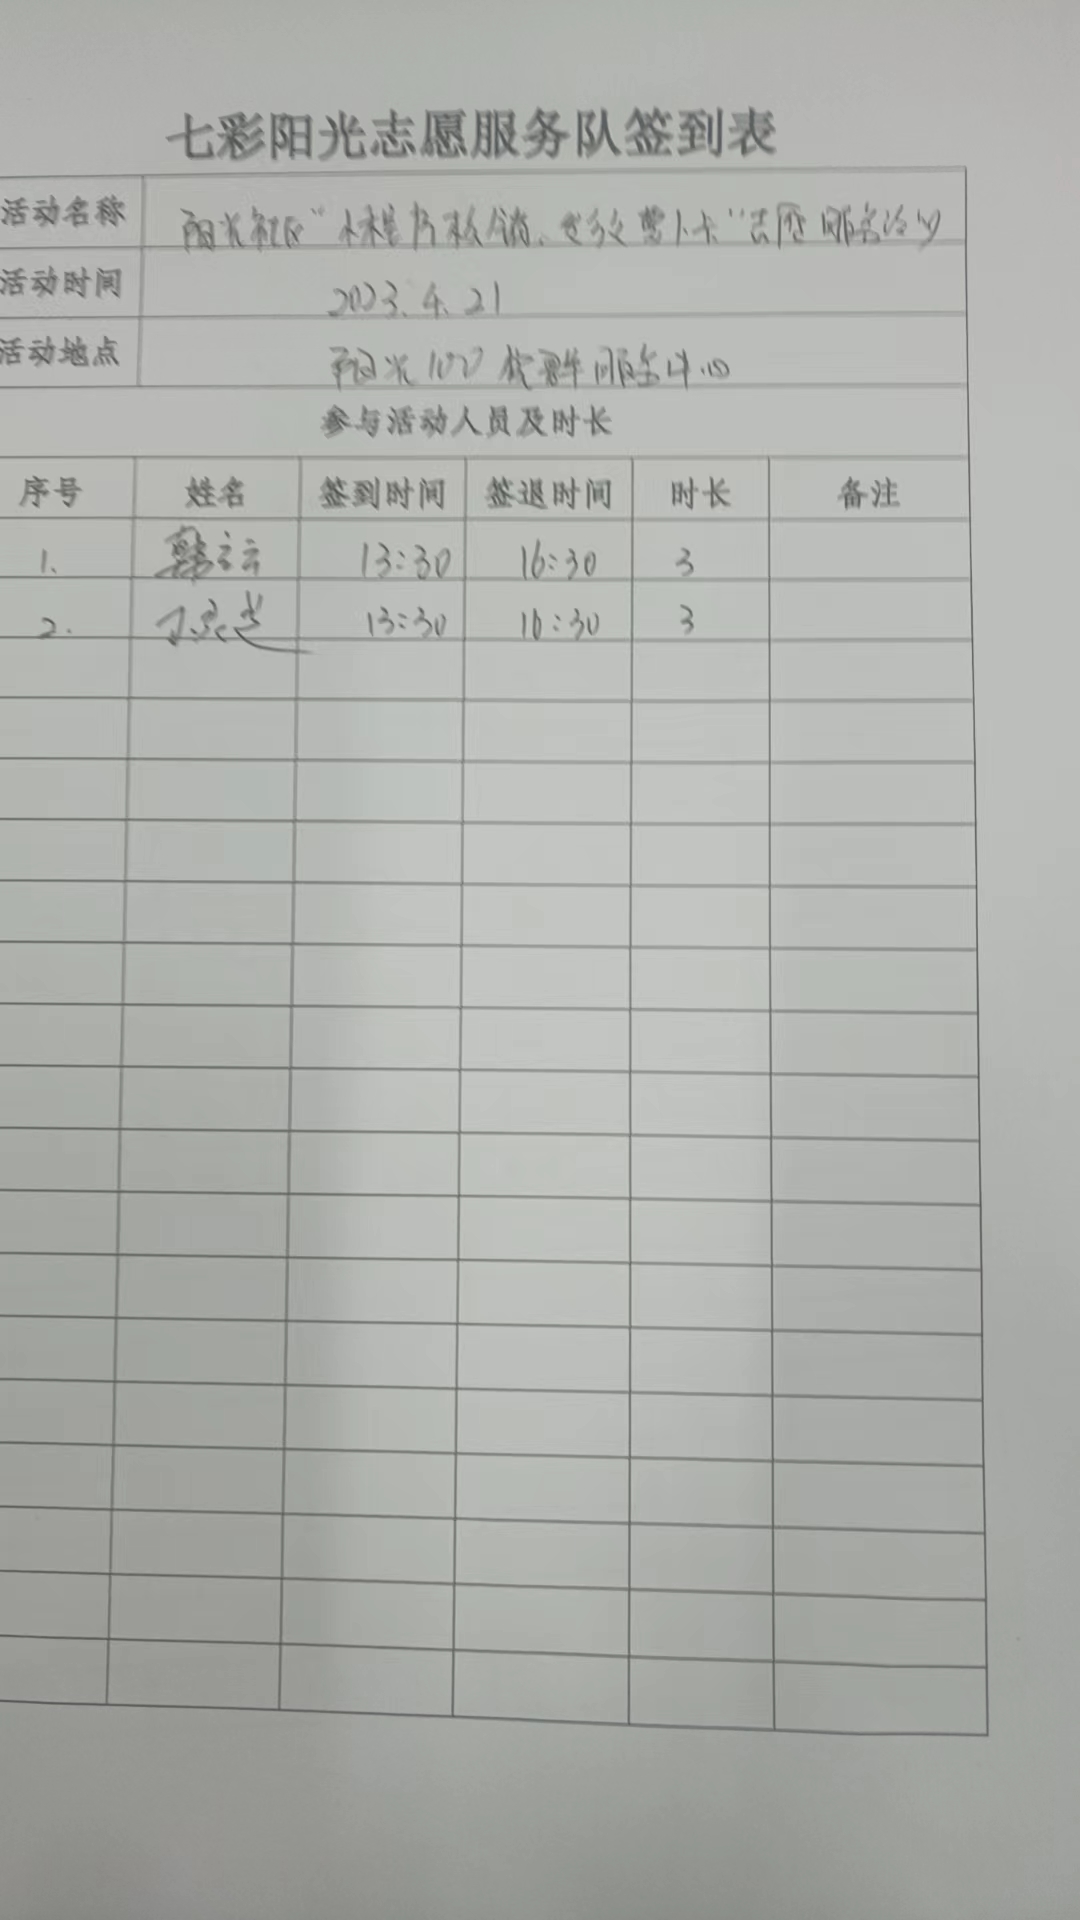 七彩阳光志愿服务队签到表
活动名称 阳光社区“
活动时间 2023.4.21
活动地点 阳光100党群服务中心
参与活动人员及时长
序号 姓名 签到时间 签退时间 时长 备注
1. 韩云云 13:30 16:30 3
2. 13:30 16:30 3